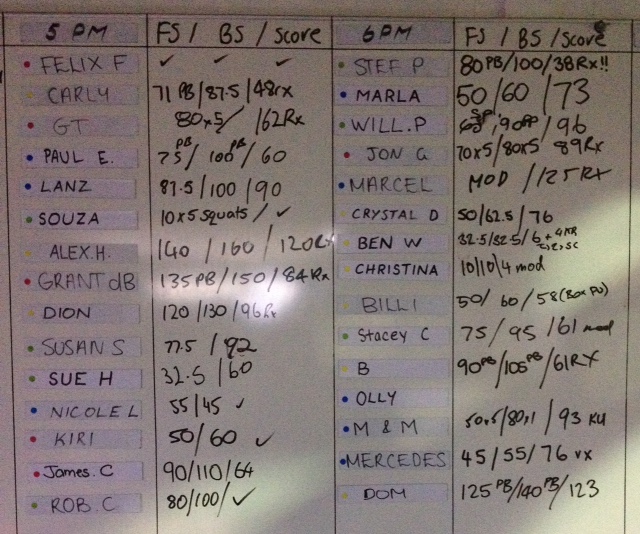 5 PM FS / BS / Score
FELIX F ✓ ✓ ✓
CARLY 71 PB/87.5/48rx
GT 80x5/ /62Rx
PAUL E. 75 PB/100 PB/60
LANZ 87.5/100/90
SOUZA 10x5 squats/ ✓
ALEX.H. 140 / 160 / 120Rx
GRANT dB 135PB/150/84Rx
DION 120/130/96Rx
SUSAN S 77.5 /92
SUE H 32.5/60
NICOLE L 55/45 ✓
KIRI 50/60 ✓
James.C 90/110/64
ROB.C 80/100/✓
6PM FS / BS /Score
STEF P 80PB/100/38Rx!!
MARLA 50/60/73
WILL.P /96
JON G 70x5/80x5 89Rx
MARCEL MOD /125Rx
CRYSTAL D 50/62.5/76
BEN W 32.5/32.5/6
CHRISTINA 10/10/4 mod
BILLI 50/ 60/58 (Box PU)
Stacey C 75/95/61 mod
B 90PB/105PB/61RX
OLLY
M & M /93
MERCEDES 45/55/76
DOM 125PB/140PB/123